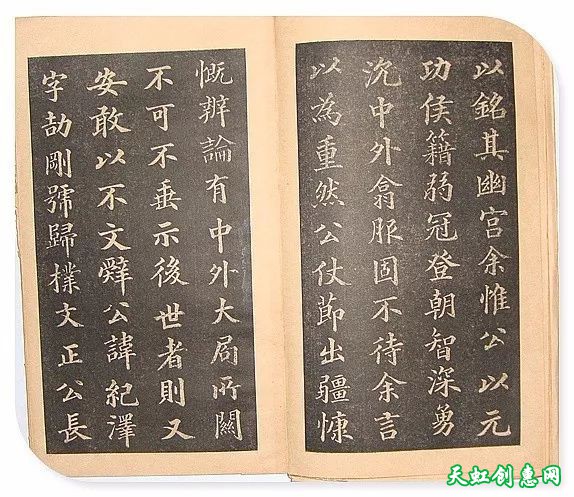 以銘其幽宮余惟公以元
功侯籍弱冠登朝智深勇
沉中外翕服固不待余言
以為重然公仗節出疆慷
慨辨論有中外大局所關
不可不垂示後世者則又
安敢以不文辭公諱紀澤
字劼剛號歸樸文正公長
天虹创意网